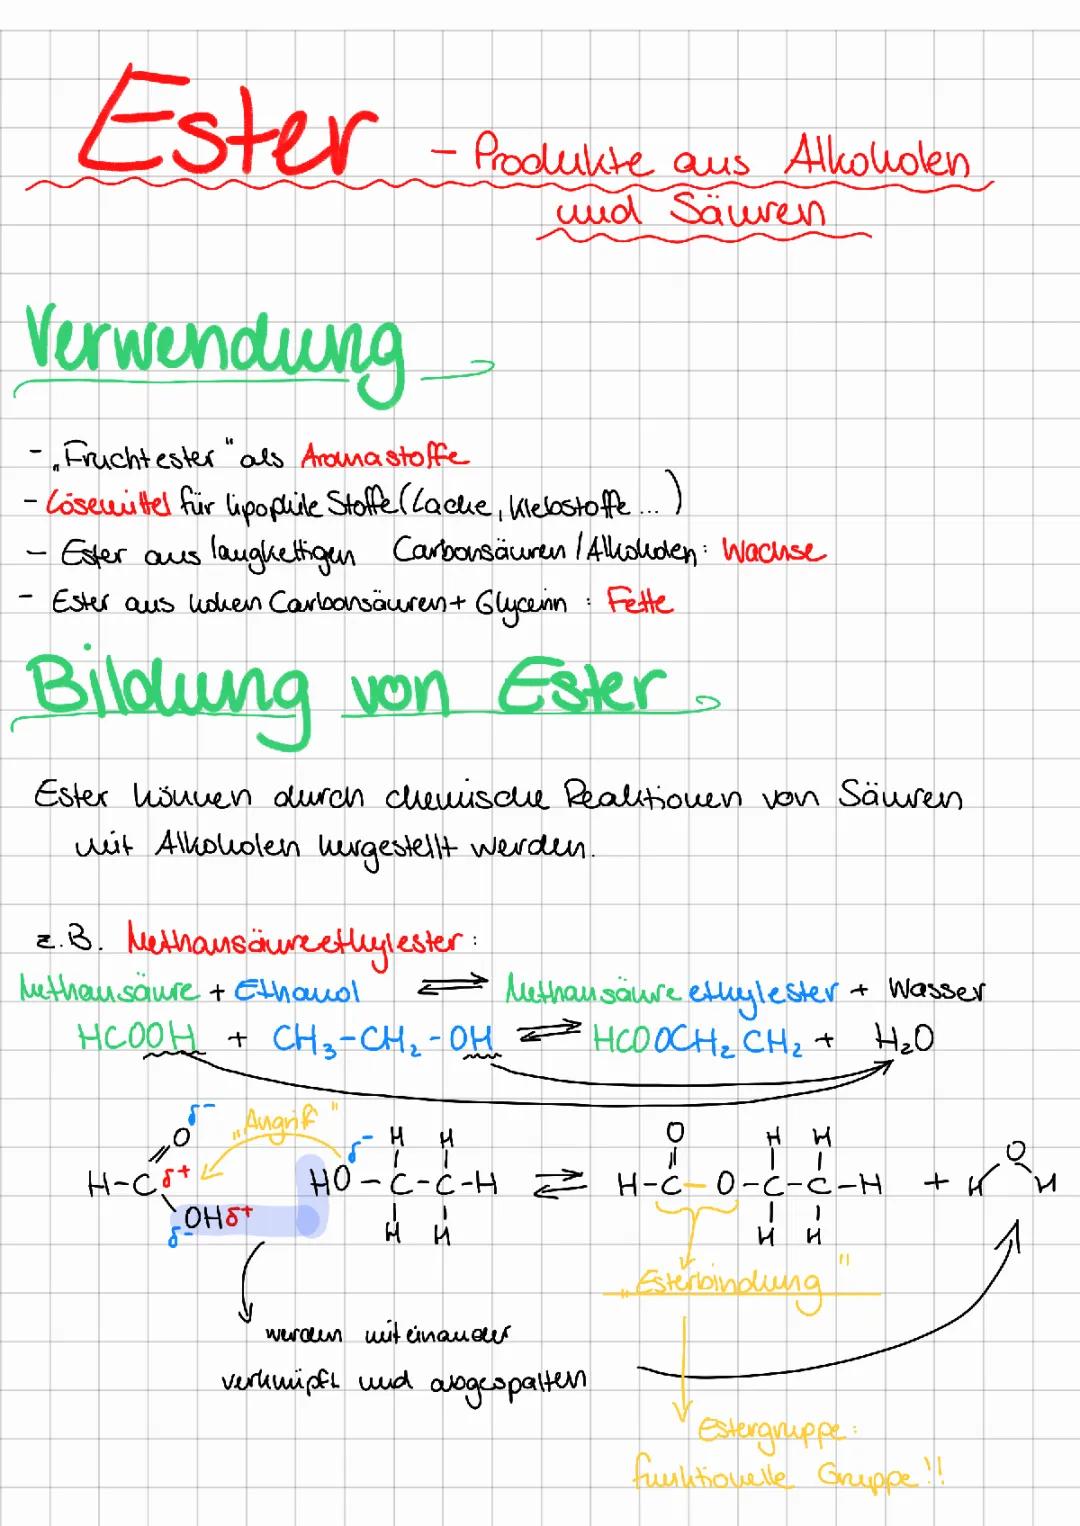 Ester - Produkte aus Alkoholen
und Säuren
Verwendung
- „Fruchtester" als Aromastoffe
- Lösemittel für lipophile Stoffe (Lacke, Klebstoffe ... )
- Ester aus langkettigen Carbonsäuren / Alkoholen: Wachse
- Ester aus hohen Carbonsäuren + Glycerin : Fette
Bildung von Ester
Ester können durch chemische Reaktionen von Säuren
mit Alkoholen hergestellt werden.
z.B. Methansäureethylester:
Methansäure + Ethanol ⇌ Methansäureethylester + Wasser
HCOOH + CH₃-CH₂-OH ⇌ HCOOCH₂CH₂ + H₂O
„Angriff"
δ- O δ- H H O H H O
H-C δ+ HO-C-C-H ⇌ H-C-O-C-C-H + H H
δ- OH δ+ H H H H
„Esterbindung"
werden miteinander
verknüpft und abgespalten
Estergruppe:
funktionelle Gruppe!!